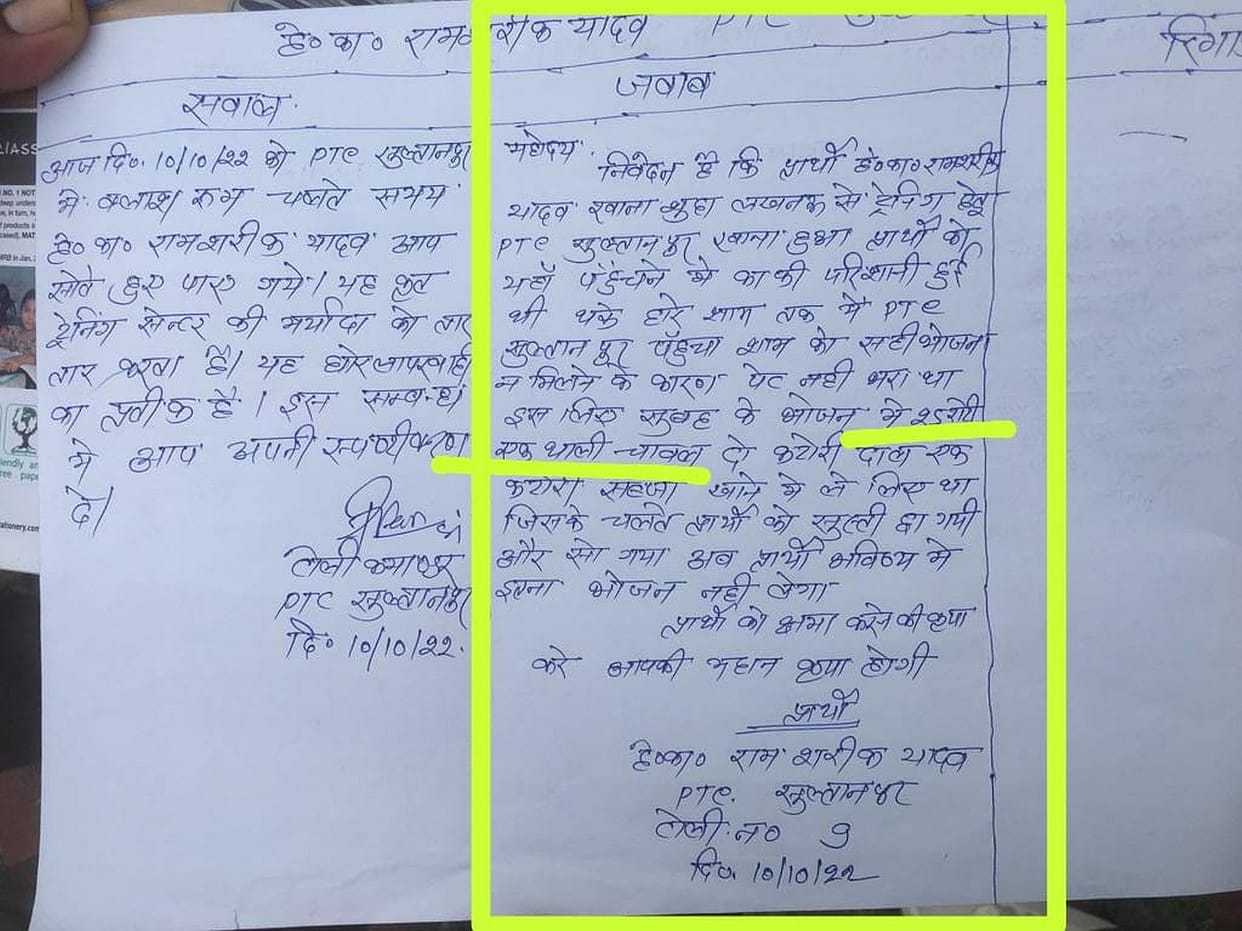 हे०का० रामशरीक यादव PTC
सवाल
आज दि० 10/10/22 को PTC सुल्तानपुर
मे क्लास रूम चलते समय
हे०का० रामशरीक यादव आप
सोते हुए पाए गये। यह कृत
ट्रेनिंग सेन्टर की मर्यादा को तार
तार करता है। यह घोर लापरवाही
का प्रतीक है। इस सम्बन्ध
मे आप अपनी स्पष्टीकरण
दे।
टोली कमाण्डर
PTC सुल्तानपुर
दि० 10/10/22.
जवाब
महोदय,
निवेदन है कि प्रार्थी हे०का० रामशरीक
यादव रवाना शुदा लखनऊ से ट्रेनिंग हेतु
PTC सुल्तानपुर रवाना हुआ प्रार्थी को
यहाँ पँहुचने मे काफी परिशानी हुई
थी थके हारे शाम तक मे PTC
सुल्तानपुर पँहुचा शाम को सही भोजन
न मिलने के कारण पेट नही भरा था
इस लिए सुबह के भोजन मे 25 रोटी
एक थाली चावल दो कटोरी दाल एक
कटोरी सब्जी खाने मे ले लिए था
जिसके चलते प्रार्थी को सुस्ती छा गयी
और सो गया अब प्रार्थी भविष्य मे
इतना भोजन नही लेगा
प्रार्थी को क्षमा करने की कृपा
करे आपकी महान कृपा होगी
प्रार्थी
हे०का० राम शरीक यादव
PTC. सुल्तानपुर
टोली न० 9
दि०. 10/10/22